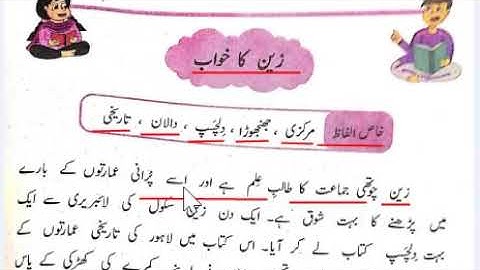 زین کا خواب
خاص الفاظ مرکزی ، جھنجھوڑا ، دلچسپ ، دالان ، تاریخی
زین چوتھی جماعت کا طالبِ عِلم ہے اور اسے پُرانی عمارتوں کے بارے
میں پڑھنے کا بہت شوق ہے۔ ایک دن زین سکول کی لائبریری سے ایک
بہت دِلچسپ کتاب لے کر آیا۔ اس کتاب میں لاہور کی تاریخی عمارتوں کے
کمرے کی کھڑکی کے پاس